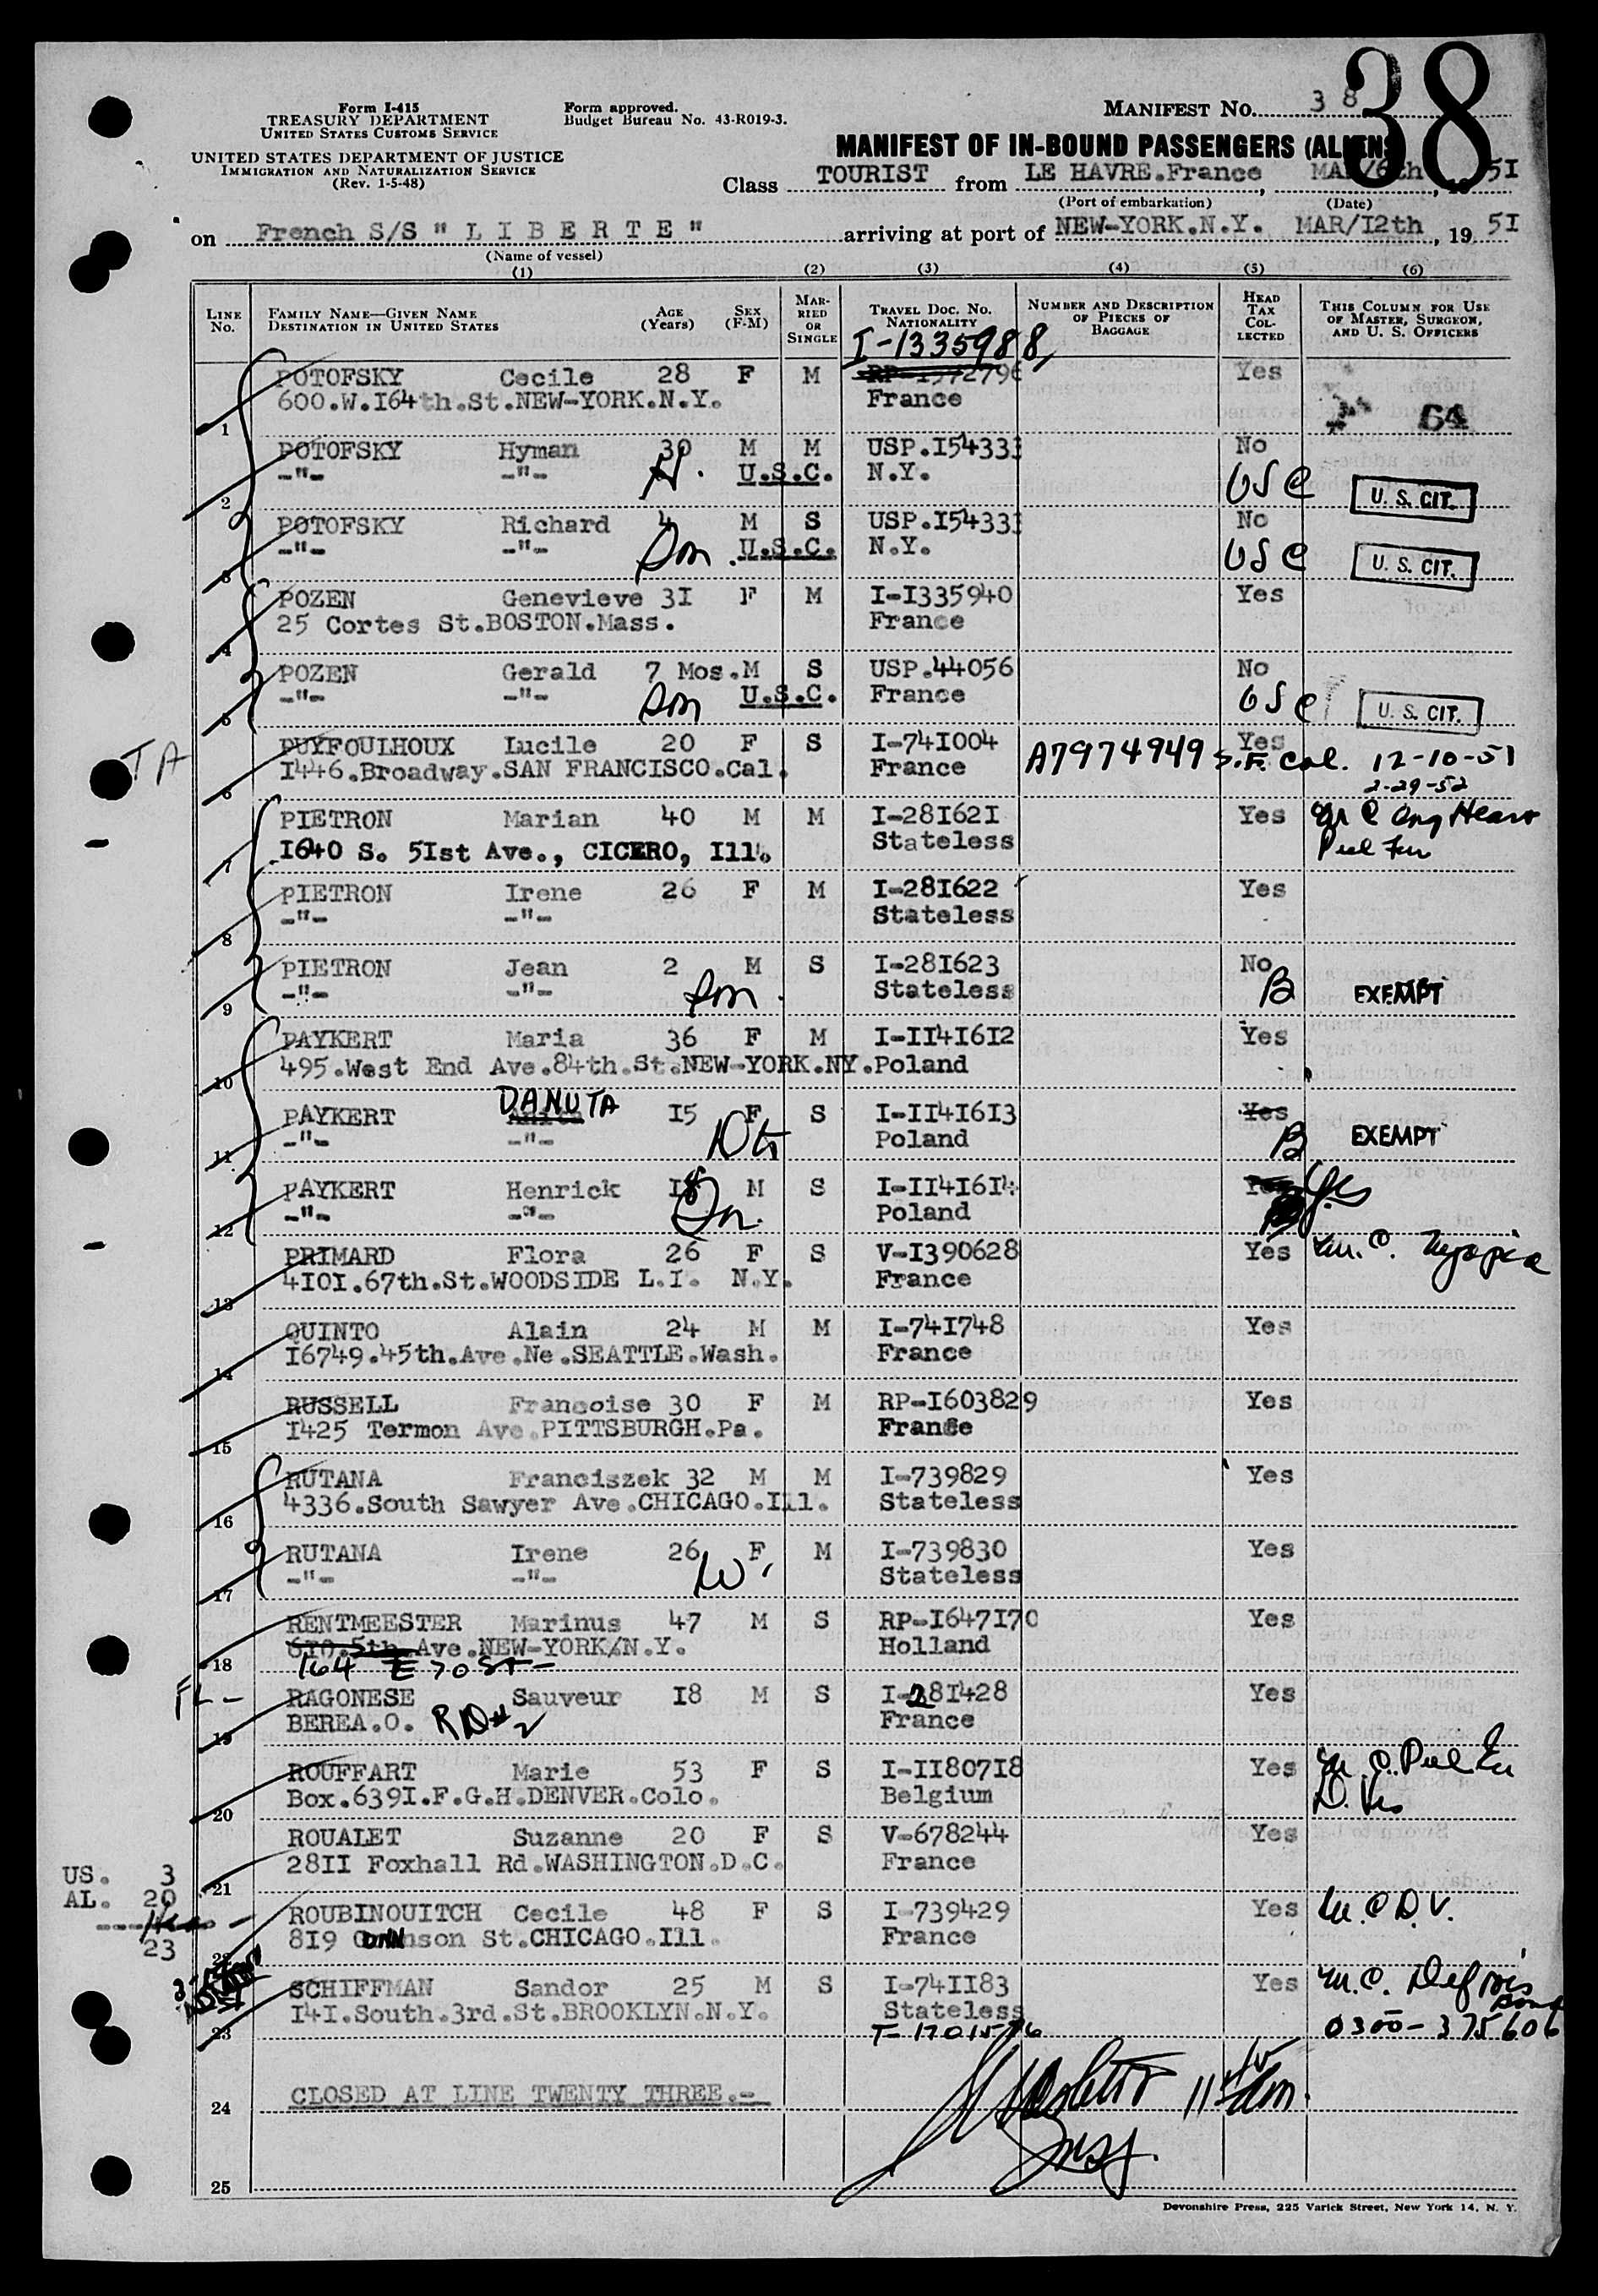 38
Form I-415
TREASURY DEPARTMENT
UNITED STATES CUSTOMS SERVICE
UNITED STATES DEPARTMENT OF JUSTICE
IMMIGRATION AND NATURALIZATION SERVICE
(Rev. 1-5-48)
Form approved.
Budget Bureau No. 43-R019-3.
MANIFEST NO. 38
MANIFEST OF IN-BOUND PASSENGERS (ALIEN)
Class TOURIST from LE HAVRE.France, MAR/6th, 1951
(Port of embarkation) (Date)
on French S/S " L I B E R T E " arriving at port of NEW-YORK.N.Y. MAR/I2th, 19 51
(Name of vessel)
(1) (2) (3) (4) (5) (6)
LINE No. FAMILY NAME—GIVEN NAME DESTINATION IN UNITED STATES AGE (Years) SEX (F-M) MARRIED OR SINGLE TRAVEL DOC. NO. NATIONALITY NUMBER AND DESCRIPTION OF PIECES OF BAGGAGE HEAD TAX COLLECTED THIS COLUMN FOR USE OF MASTER, SURGEON, AND U. S. OFFICERS
I-1335988
POTOFSKY Cecile 28 F M Yes
600.W.I64th.St.NEW-YORK.N.Y. France
1 64
POTOFSKY Hyman 30 M M USP.I54333 No
-"- -"- H. U.S.C. N.Y. USC U. S. CIT.
2
POTOFSKY Richard 4 M S USP.I54333 No
-"- -"- Son. U.S.C. N.Y. USC U. S. CIT.
3
POZEN Genevieve 3I F M I-I335940 Yes
25 Cortes St.BOSTON.Mass. France
4
POZEN Gerald 7 Mos. M S USP.44056 No
-"- -"- Son U.S.C. France USC U. S. CIT.
5
PUYFOULHOUX Lucile 20 F S I-74I004 Yes
TA I446.Broadway.SAN FRANCISCO.Cal. France A7974949 S.F. Cal. 12-10-51
6 2-29-52
PIETRON Marian 40 M M I-28I62I Yes
I640 S. 5Ist Ave., CICERO, Ill. Stateless
7
PIETRON Irene 26 F M I-28I622 Yes
-"- -"- Stateless
8
PIETRON Jean 2 M S I-28I623 No
-"- -"- Son. Stateless B EXEMPT
9
PAYKERT Maria 36 F M I-II4I6I2 Yes
495.West End Ave.84th.St.NEW-YORK.NY.Poland
10
DANUTA
PAYKERT I5 F S I-II4I6I3 Yes
-"- -"- Dtr Poland B EXEMPT
11
PAYKERT Henrick I8 M S I-II4I6I4 Yes
-"- -"- Sn. Poland
12
PRIMARD Flora 26 F S V-I390628 Yes M.C. Myopia
4IOI.67th.St.WOODSIDE L.I. N.Y. France
13
QUINTO Alain 24 M M I-74I748 Yes
I6749.45th.Ave.Ne.SEATTLE.Wash. France
14
RUSSELL Francoise 30 F M RP-I603829 Yes
I425 Termon Ave.PITTSBURGH.Pa. France
15
RUTANA Franciszek 32 M M I-739829 Yes
4336.South Sawyer Ave.CHICAGO.Ill. Stateless
16
RUTANA Irene 26 F M I-739830 Yes
-"- -"- W. Stateless
17
RENTMEESTER Marinus 47 M S RP-I647I70 Yes
610.5th.Ave.NEW-YORK/N.Y. Holland
18 164 E 70 St-
RAGONESE Sauveur I8 M S I-28I428 Yes
BEREA.O. RD#2 France
19
ROUFFART Marie 53 F S I-II807I8 Yes
Box.639I.F.G.H.DENVER.Colo. Belgium
20
ROUALET Suzanne 20 F S V-678244 Yes
28II Foxhall Rd.WASHINGTON.D.C. France
21
US. 3
AL. 20
23
ROUBINOUITCH Cecile 48 F S I-739429 Yes M.C D.V.
8I9 St.CHICAGO.Ill. France
22
SCHIFFMAN Sandor 25 M S I-74II83 Yes M.C. Def Vis
I4I.South.3rd.St.BROOKLYN.N.Y. Stateless
23 0300-375606
CLOSED AT LINE TWENTY THREE.-
24
Insp.
25
Devonshire Press, 225 Varick Street, New York 14, N. Y.